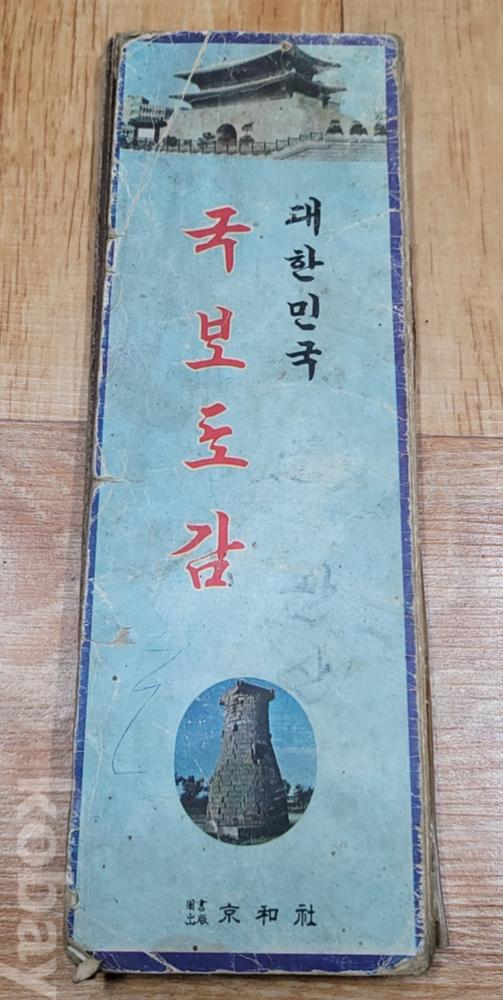 대한민국
국보도감
圖書出版 京和社
kobay